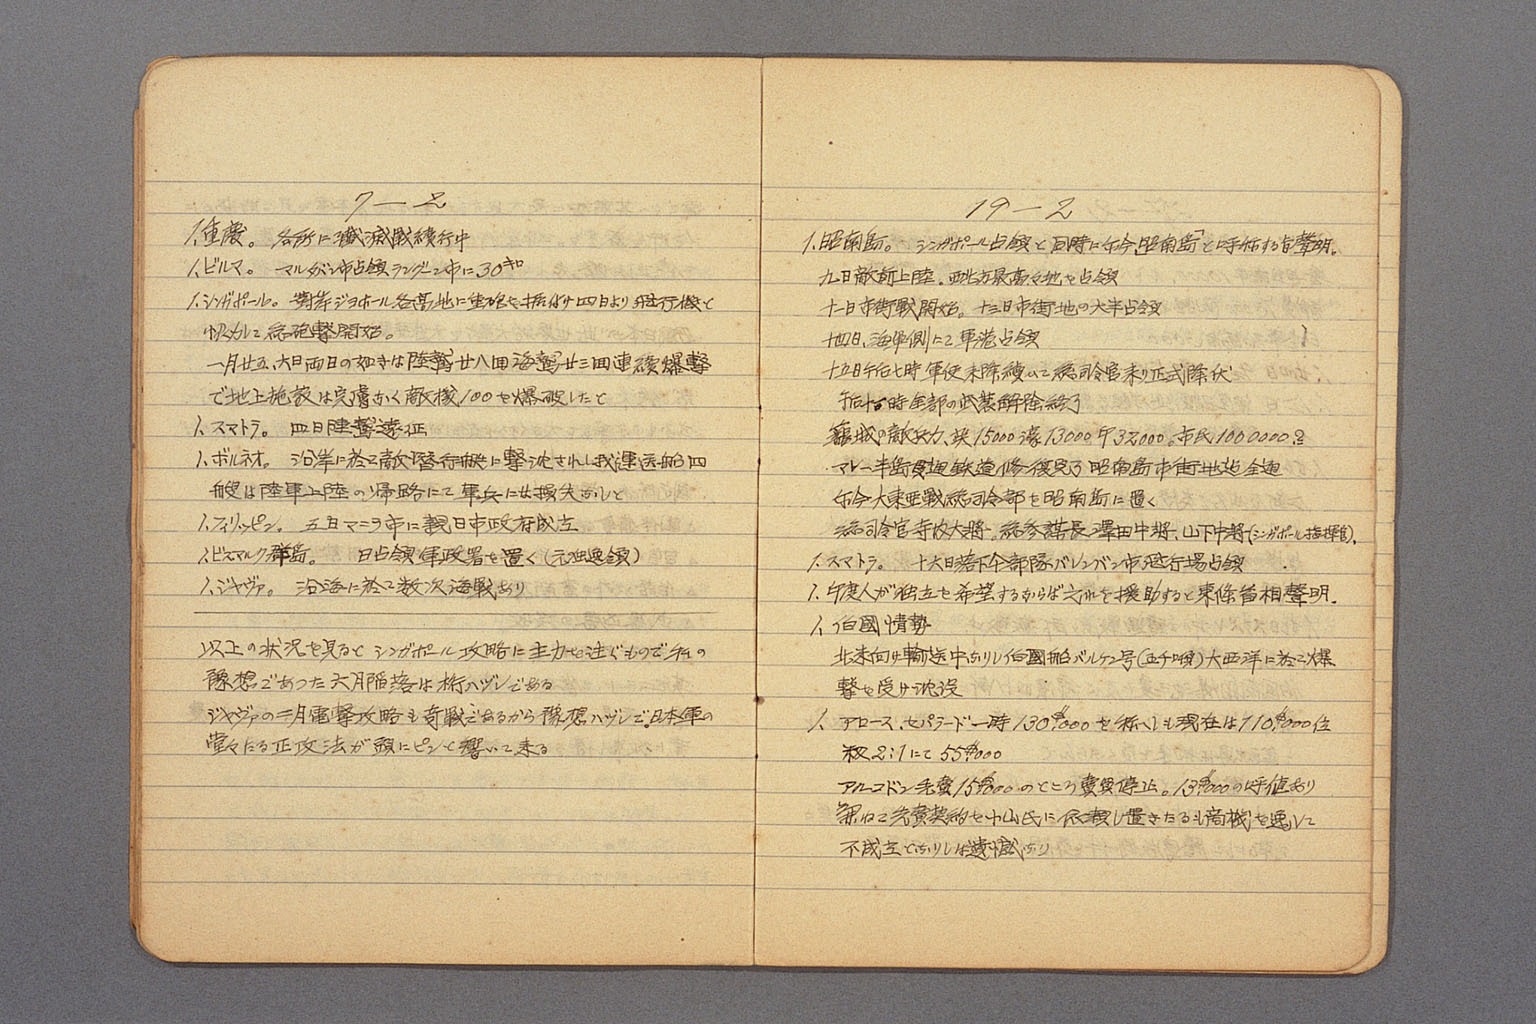 7－2
1. 重慶。 各所に殲滅戦續行中
1. ビルマ。 マルタバン市占領ラングーン市に30キロ
1. シンガポール。 對岸ジヨホール各高地に重砲を据ゑ付け四日より飛行機と
協力して総砲撃開始。
一月廿五、六日両日の如きは陸鷲廿八回海鷲廿三回連続爆撃
で地上施設は完膚なく敵機100を爆破したと
1. スマトラ。 四日陸鷲遠征
1. ボルネオ。 沿岸に於て敵潜行艇に撃沈されし我運送船四
艘は陸軍上陸の帰路にて軍兵には損失なしと
1. フィリッピン。 五日マニラ市に親日市政府成立
1. ビスマルク群島。 日占領軍政署を置く(元独逸領)
1. ジャヴァ。 沿海に於て数次海戦あり
以上の状況を見ると シンガポール攻略に主力を注ぐもので の
豫想であつた六月陥落は桁ハヅレである
ジャヴァの二月電撃攻略も奇戦であるから豫想ハヅレで日本軍の
堂々たる正攻法が頭にピンと響いて来る
19－2
1. 昭南島。 シンガポール占領と同時に午今「昭南島」と呼称する旨聲明。
九日敵前上陸。西北方最高々地を占領
十一日市街戦開始。十三日市街地の大半占領
十四日、海軍側にて軍港占領
十五日午后七時 軍使来降 続いて総司令官来り正式降伏
午后十時全部の武装解除終了
籠城の敵兵力、英15000濠13000印32000。市民1000000名
マレー半島 鉄道修復完了 昭南島市街地迄全通
午今大東亜戦総司令部を昭南島に置く
総司令官寺内大将。総参謀長澤田中将、山下中将(シンガポール指揮官).
1. スマトラ。 十六日落下傘部隊パレンバン市飛行場占領
1. 印度人が独立を希望するならば之れを援助すると東條首相聲明.
1. 伯國情勢
北米向け輸送中なりし伯國船バルケ号(五千噸)大西洋に於て爆
撃を受け沈没
1. アロース、セパラード一時130$000を称へしも現在は110$000位
籾2:1にて55$000
アルゴドン 15$000のところ賣買停止。13$000の呼値あり
兼ねて売買契約を中山氏に依頼し置きたるも商機を逸して
不成立となりしは遺憾なり